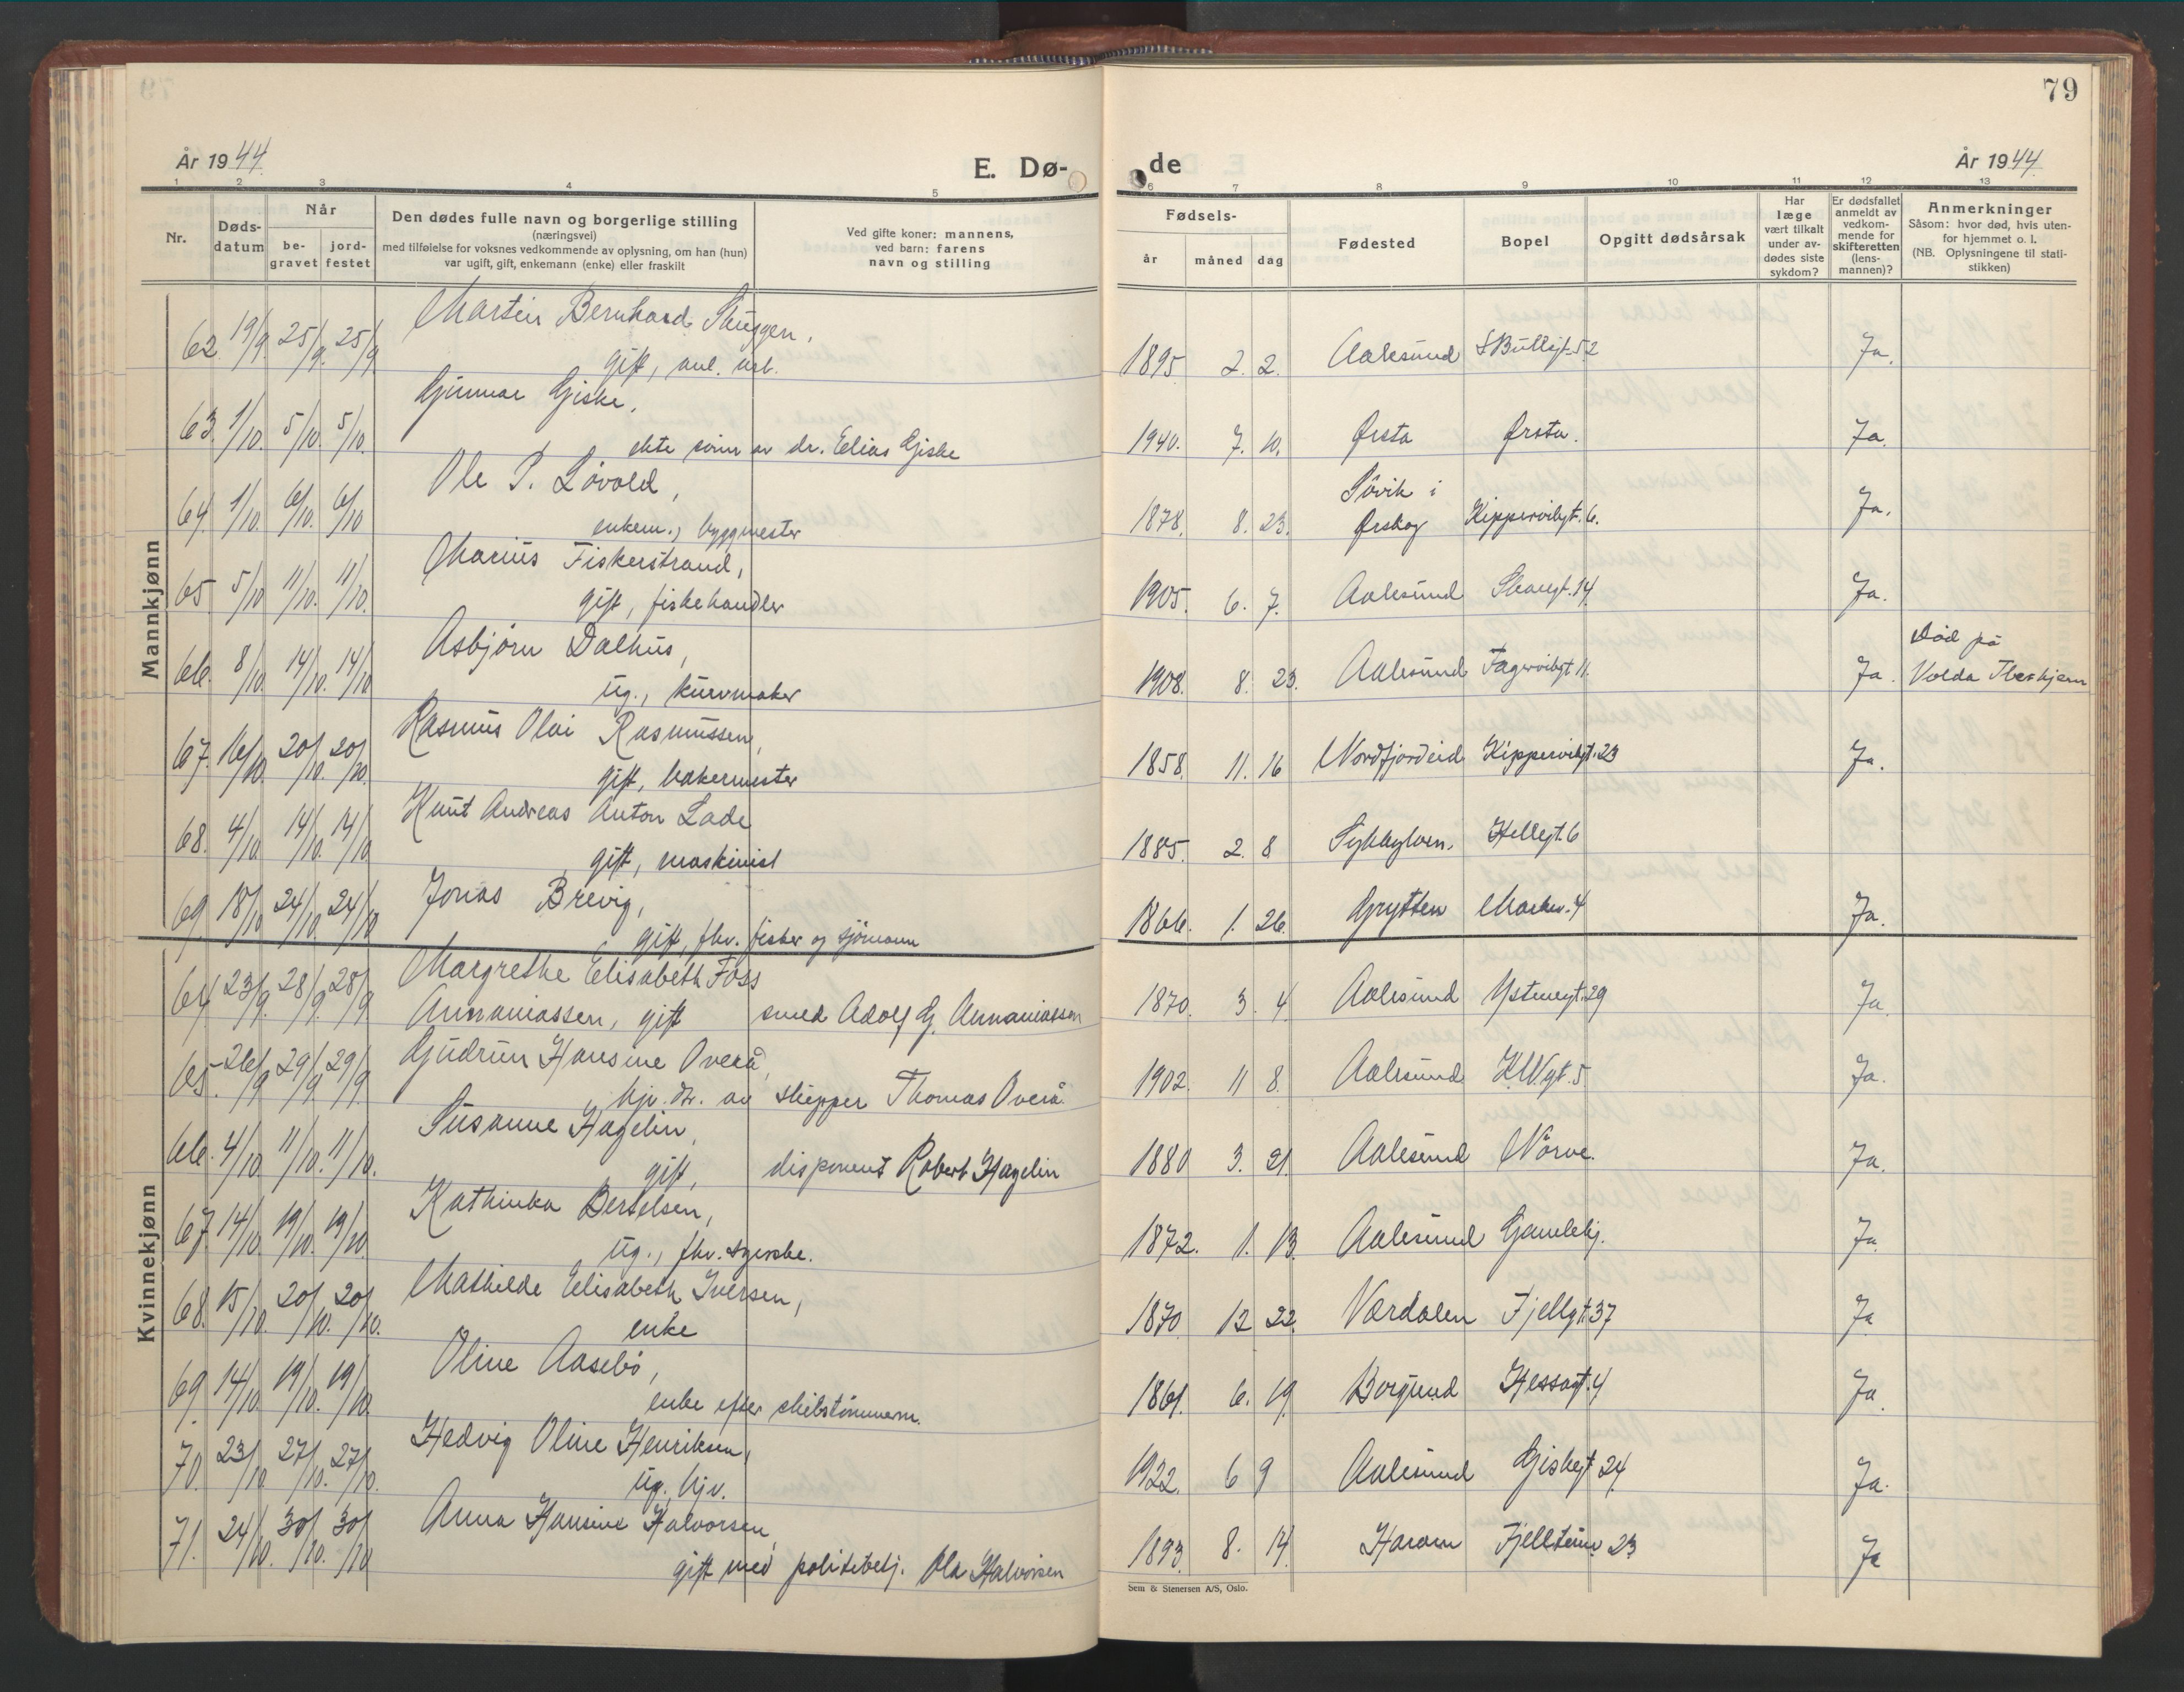 79
År 1944
E. Dø-
de
År 1944
1 2 3 4 5 6 7 8 9 10 11 12 13
Nr.
Døds-
datum
Når
be-
gravet
jord-
festet
Den dødes fulle navn og borgerlige stilling
(næringsvei)
med tilføielse for voksnes vedkommende av oplysning, om han (hun)
var ugift, gift, enkemann (enke) eller fraskilt
Ved gifte koner: mannens,
ved barn: farens
navn og stilling
Fødsels-
år måned dag
Fødested
Bopel
Opgitt dødsårsak
Har
læge
vært tilkalt
under av-
dødes siste
sykdom?
Er dødsfallet
anmeldt av
vedkom-
mende for
skifteretten
(lens-
mannen)?
Anmerkninger
Såsom: hvor død, hvis uten-
for hjemmet o. l.
(NB. Oplysningene til stati-
stikken)
Mannkjønn
Martin Bernhard Skuggen,
62 19/9 25/9 25/9 gift, arb. 1895 2. 2. Aalesund 52 Ja.
Gunnar Giske,
63. 1/10. 5/10. 5/10. ekte sønn av dr. Elias Giske 1940. 7. 10. Ørsta Ørsta. Ja.
Ole P. Løvold,
64. 1/10. 6/10. 6/10 enkem., byggmester 1878. 8. 23. Søvik i Ørskog Kippervikgt. 6. Ja.
Marius Fiskerstrand,
65. 5/10 11/10. 11/10. gift, fiskehandler 1905. 6. 7. Aalesund Skaregt. 14 Ja.
Asbjørn Dalhus,
66. 8/10. 14/10. 14/10 ug., kurvmaker 1908. 8. 23. Aalesund Fagervikgt 11. Ja. Død på
Volda
Rasmus Olai Rasmussen,
67. 16/10. 20/10. 20/10 gift, bakermester 1858. 11. 16 Nordfjordeid Kippervikgt. 23 Ja.
Knut Andreas Anton Lade
68. 4/10 14/10. 14/10 gift, maskinist 1885. 2. 8 Sykkylven. Hellegt. 6
Jonas Brevig,
69. 18/10 24/10. 24/10 gift, fhv. fisker og sjømann 1866. 1. 26. Grytten 4 Ja.
Kvinnekjønn
Margrethe Elisabeth Foss
64. 23/9. 28/9. 28/9 Annaniassen, gift smed Adolf G. Annaniassen 1870. 3. 4. Aalesund Ystenesgt. 29 Ja.
Gudrun Hansine Overå,
65. 26/9 29/9. 29/9. hjv. dtr. av skipper Thomas Overå. 1902. 11 8. Aalesund K.W.gt. 5 Ja.
Susanne Hagelin,
66. 4/10. 11/10. 11/10. gift, disponent Robert Hagelin 1880 3. 21. Aalesund Nørve. Ja.
Kathinka Bertelsen,
67. 14/10. 19/10. 19/10. ug., fhv. syerske. 1872. 1. 13. Aalesund Gamlehj. Ja.
Mathilde Elisabeth Iversen,
68. 15/10. 20/10. 20/10. enke 1870. 12 22. Værdalen Fjellgt. 37 Ja
Oline Aasebø,
69. 14/10. 19/10. 19/10. enke efter skibstømmerm. 1861. 6. 19. Borgund Hessagt. 4 Ja.
Hedvig Oline Henriksen,
70. 23/10. 27/10. 27/10. ug. hjv. 1922. 6 9 Aalesund Giskegt 24 Ja.
Anna Hansine Halvorsen,
71. 24/10. 30/10. 30/10 gift med politibetj. Ola Halvorsen 1893 8. 14. Haram Fjelltun 23 Ja
Sem & Stenersen A/S, Oslo.